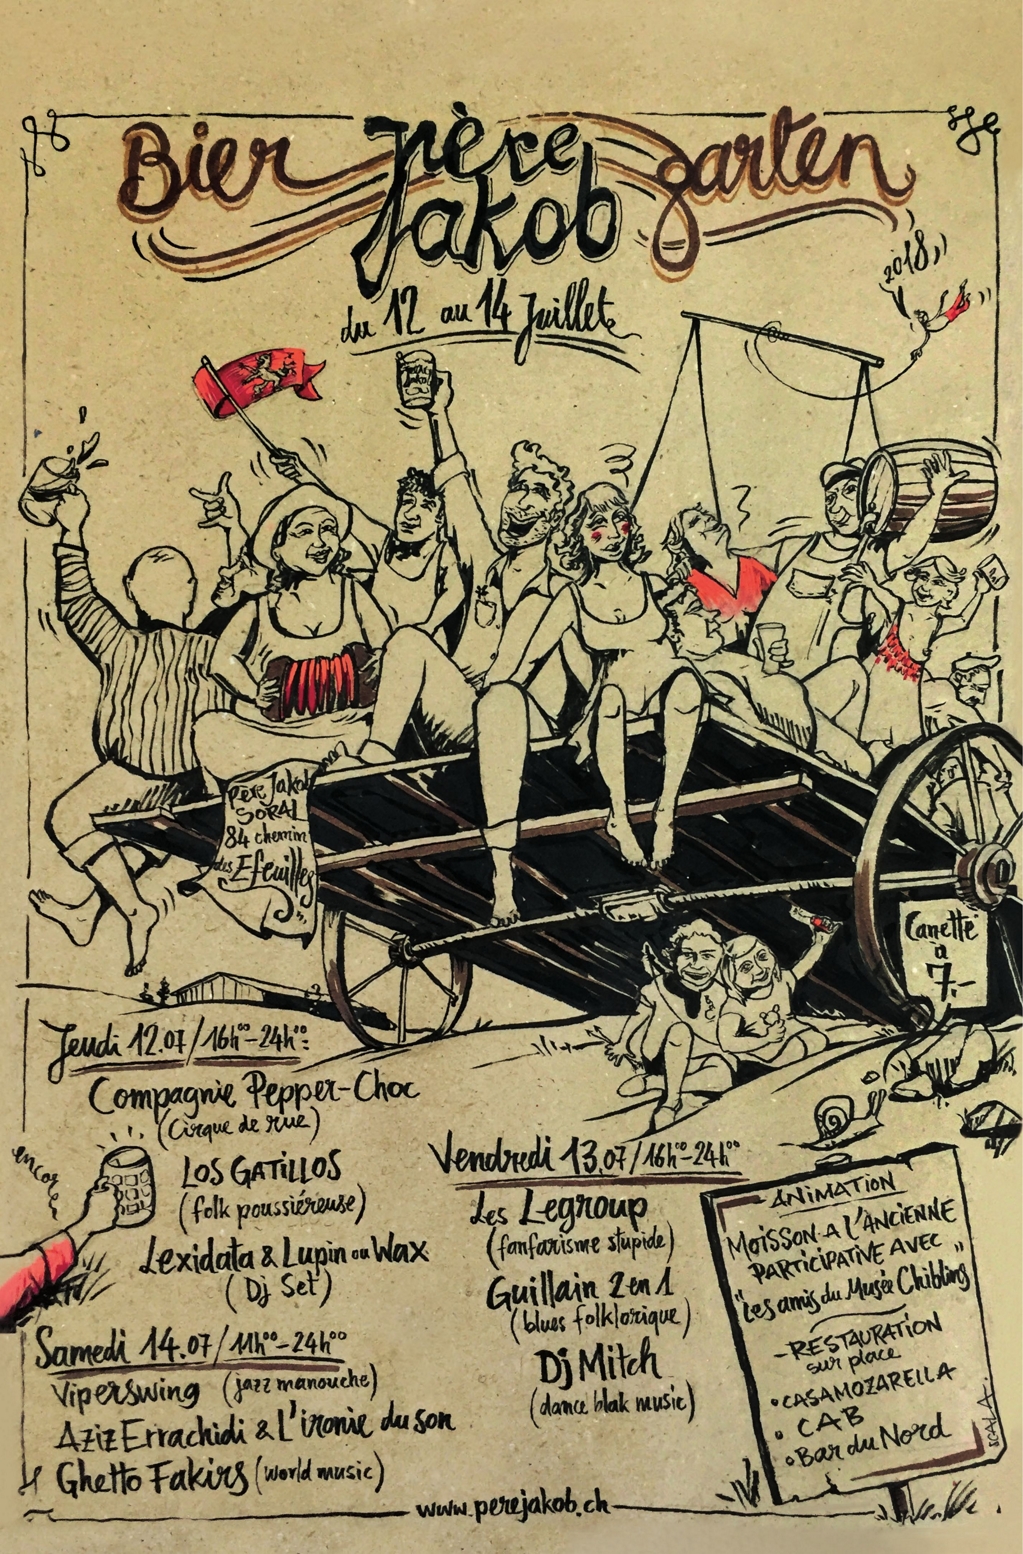 Bier Père garten
Jakob
du 12 au 14 Juillet
2018
Père Jakob
SORAL
84 chemin
des Efeuilles
Canette
à
7.-
Jeudi 12.07 / 16h00-24h00:
Compagnie Pepper-Choc
(Cirque de rue)
LOS GATILLOS
(folk poussiéreuse)
Lexidata & Lupin ou Wax
(Dj Set)
encore
Samedi 14.07 / 11h00-24h00
Viperswing (jazz manouche)
Aziz Errachidi & L'ironie du son
Ghetto Fakirs (world music)
Vendredi 13.07 / 16h00-24h00
Les Legroup
(fanfarisme stupide)
Guillain 2 en 1
(blues folklorique)
Dj Mitch
(dance blak music)
ANIMATION
MOISSON A L'ANCIENNE
PARTICIPATIVE AVEC
"Les amis du Musée Chibling"
-RESTAURATION
sur place
• CASAMOZARELLA
• CAB
• Bar du Nord
SCAL.A.
www.perejakob.ch